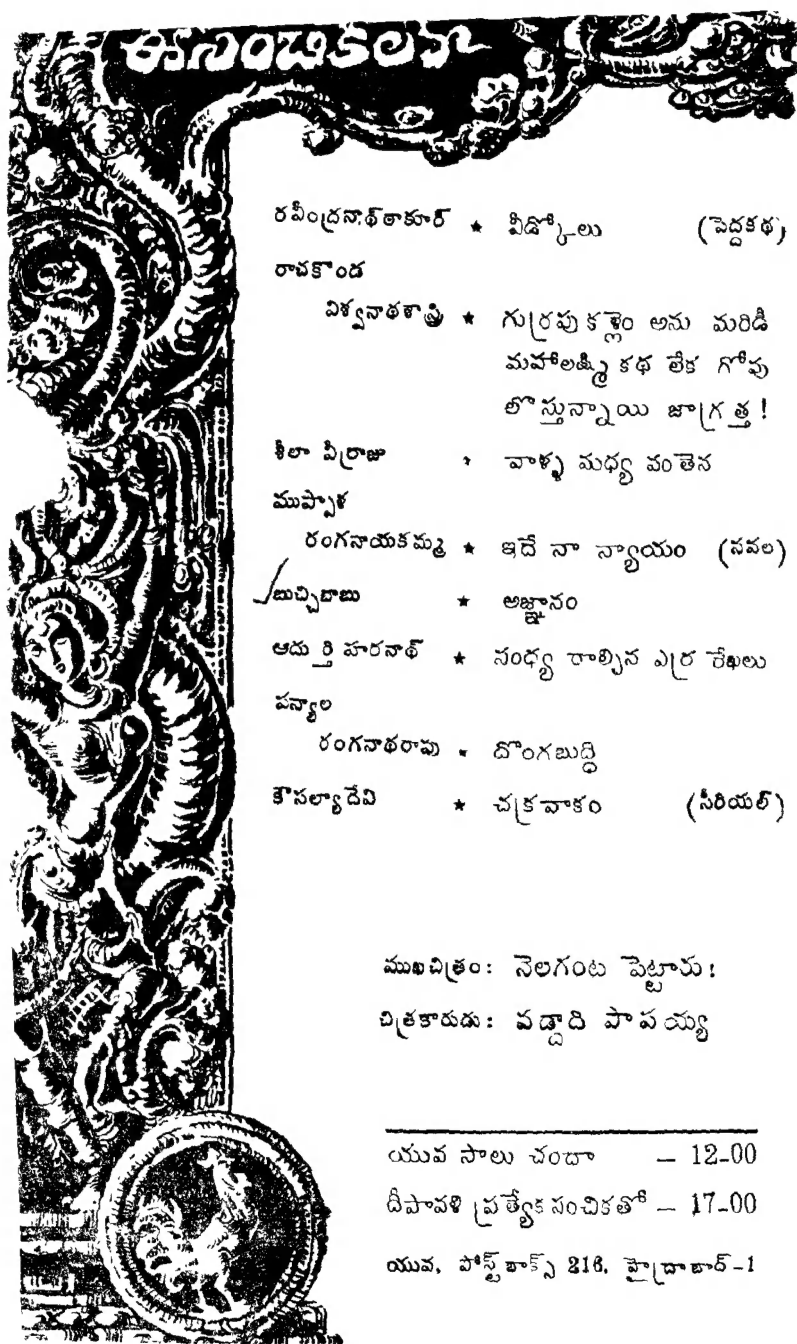 ఈసంచికలో
రవీంద్రనాథ్ఠాకూర్ ★ వీడ్కోలు (పెద్దకథ)
రాచకొండ
విశ్వనాథశాస్త్రి ★ గుర్రపు కళ్లెం అను మరిడి
మహాలక్ష్మి కథ లేక గోవు
లొస్తున్నాయి జాగ్రత్త!
శీలా వీర్రాజు ★ వాళ్ళ మధ్య వంతెన
ముప్పాళ
రంగనాయకమ్మ ★ ఇదే నా న్యాయం (నవల)
బుచ్చిబాబు ★ అజ్ఞానం
ఆదుర్తి హరనాథ్ ★ సంధ్య రాల్చిన ఎర్ర రేఖలు
పన్యాల
రంగనాథరావు ★ దొంగబుద్ధి
కౌసల్యాదేవి ★ చక్రవాకం (సీరియల్)
ముఖచిత్రం: నెలగంట పెట్టారు!
చిత్రకారుడు: వడ్డాది పాపయ్య
యువ సాలు చందా – 12-00
దీపావళి ప్రత్యేకసంచికతో – 17-00
యువ, పోస్ట్ బాక్స్ 216, హైద్రాబాద్-1